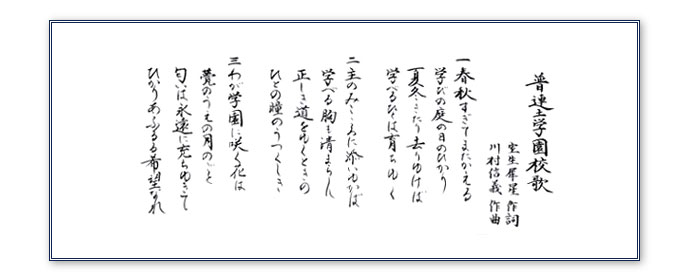 普連土学園校歌
室生犀星 作詞
川村信義 作曲
一 春秋すぎてまたかえる
学びの庭の日のひかり
夏冬きたり去りゆけば
学べるひとは育ちゆく
二 主のみこころに添いゆかば
学べる胸も清まらん
正しき道をゆくときの
ひとの瞳のうつくしき
三 わが学園に咲く花は
甍のうえの月のごと
匂いは永遠に充ちゆきて
ひかりあふるる希望なれ